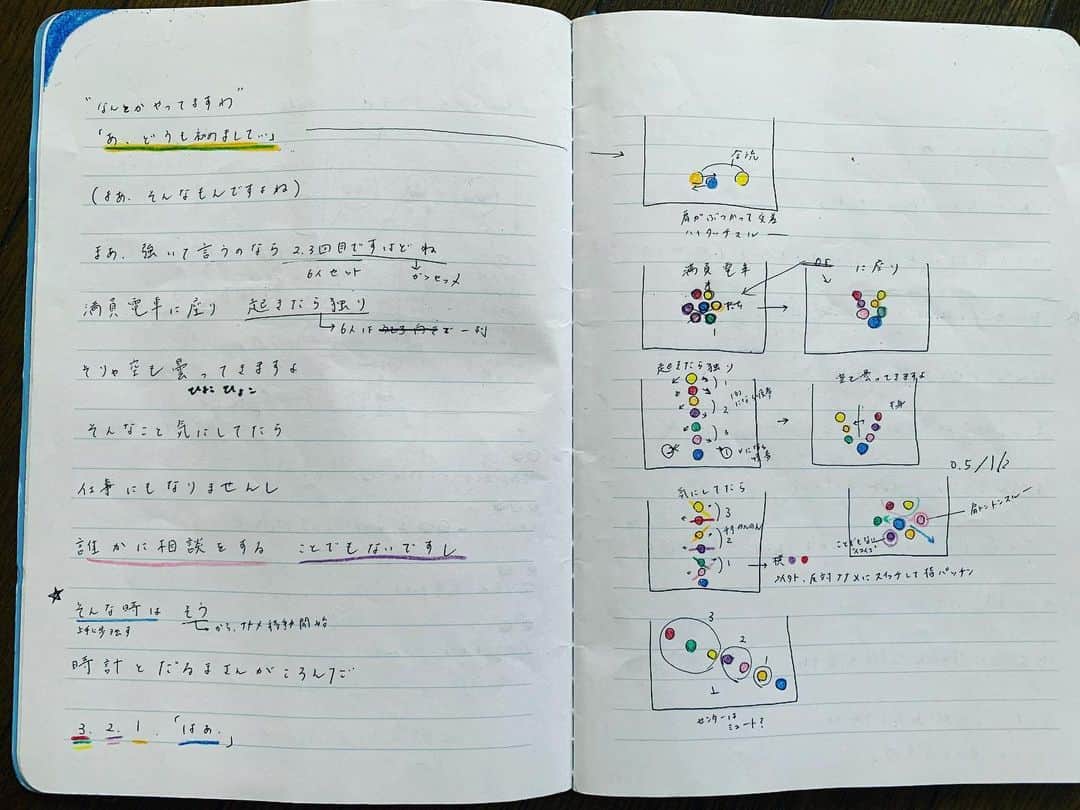 "なんとかやってますわ"
「あ、どうも初めまして…」
(まあ、そんなもんですよね)
まあ、強いて言うのなら 2,3回目ですけどね
6人セット
満員電車に座り 起きたら独り
6人は 一列
そりゃ空も曇ってきますよ
ひょこ ひょこ
そんなこと気にしてたら
仕事にもなりませんし
誰かに相談をする ことでもないですし
☆
そんな時は そう
から、ナナメ移動開始
時計とだるまさんがころんだ
3. 2. 1. 「はぁ。」
合流
肩がぶつかって
満員電車
に座り
1
起きたら独り
1
2
3
空も曇ってきますよ
0.5/1/2
気にしてたら
3
2
1
ことでもない
横
反対ナナメにスイッチして指パッチン
3
2
1
センターは
ミュート?